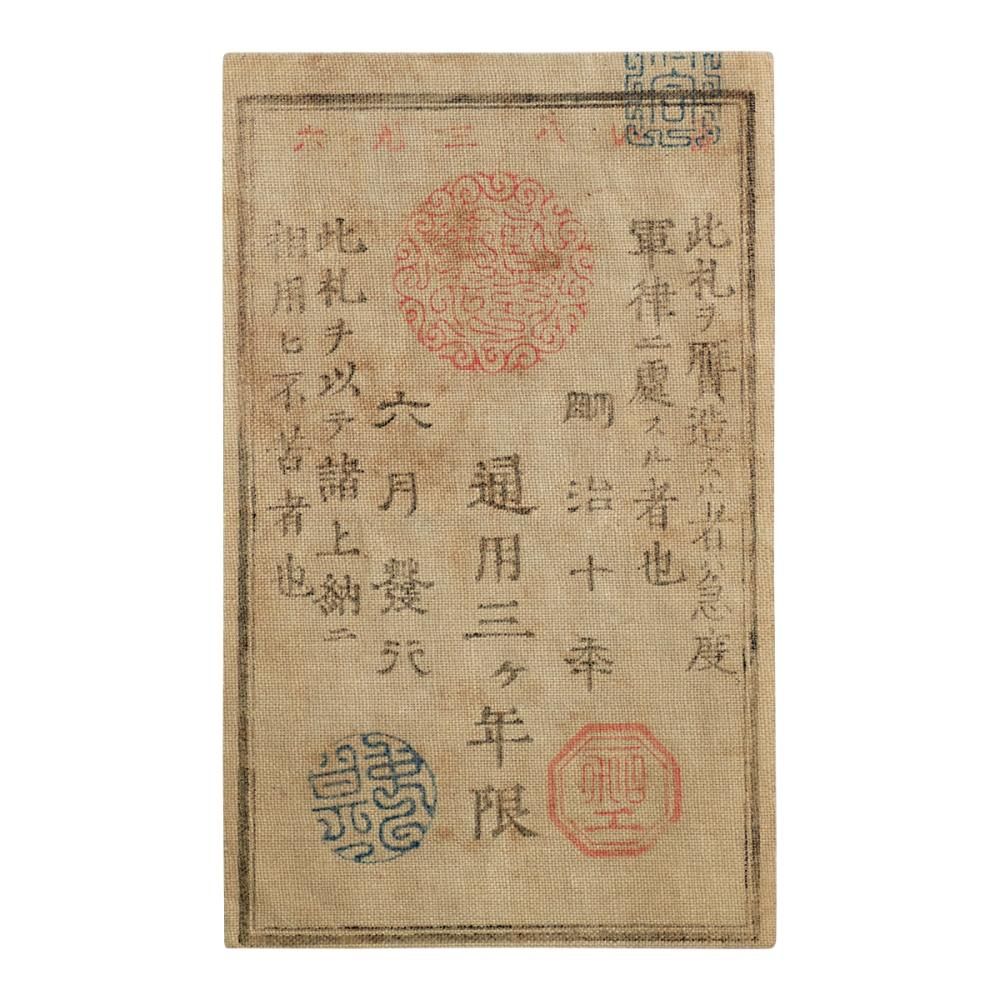 六九三八
此札ヲ贋造スル者ハ急度
軍律ニ處スル者也
明治十年
通用三ケ年限
六月發行
此札ヲ以テ諸上納ニ
相用ヒ不苦者也